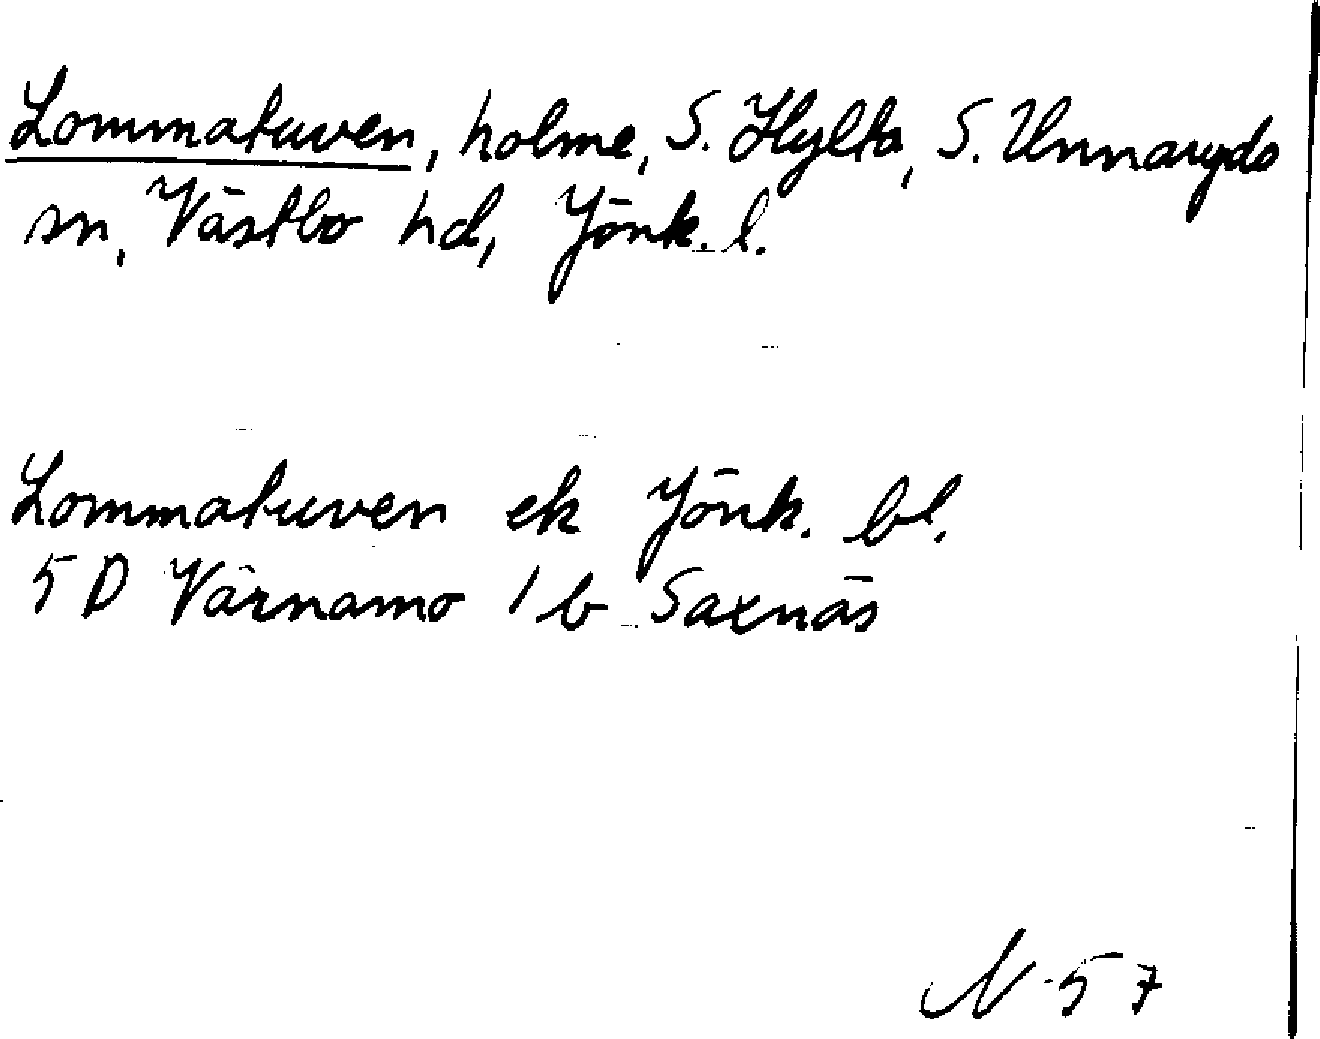 Lommatuven, holme, S. Hylta, S. Unnaryds
sn, Västbo hd, Jönk. l.
Lommatuven ek Jönk. bl.
5 D Värnamo 1 b Saxnäs
N 57